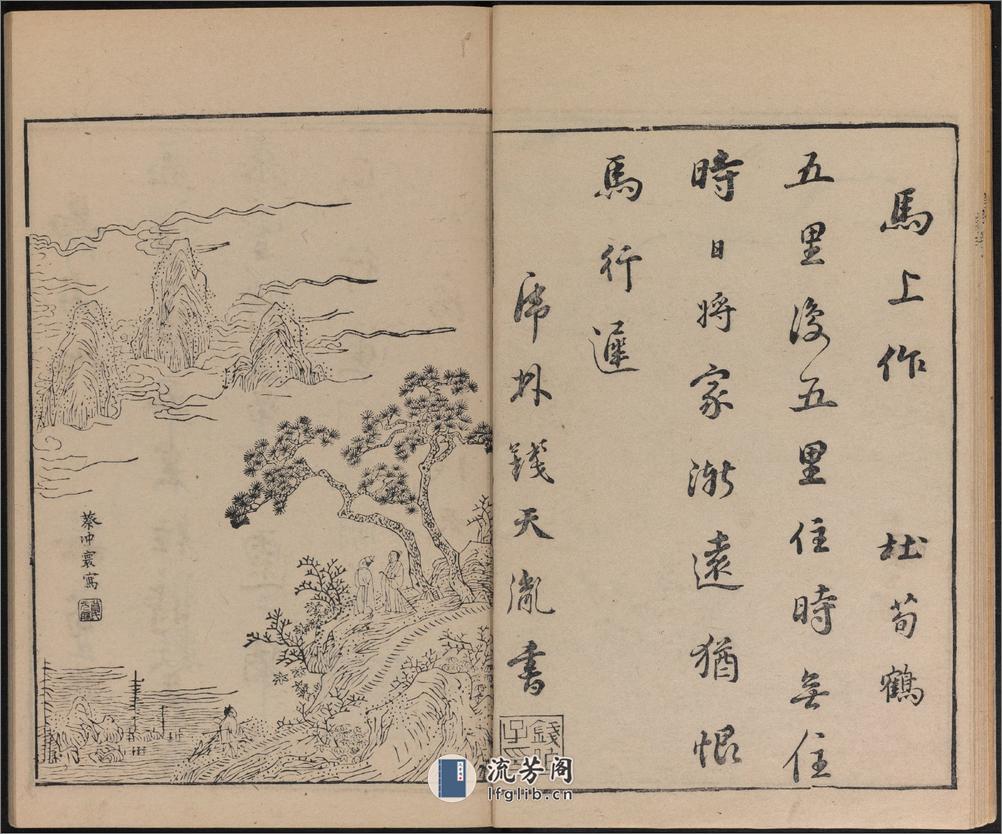 馬上作 杜荀鶴
五里復五里住時無住
時日將家漸遠猶恨
馬行遲
虎林錢天胤書
蔡冲寰寫
流芳阁
lfglib.cn